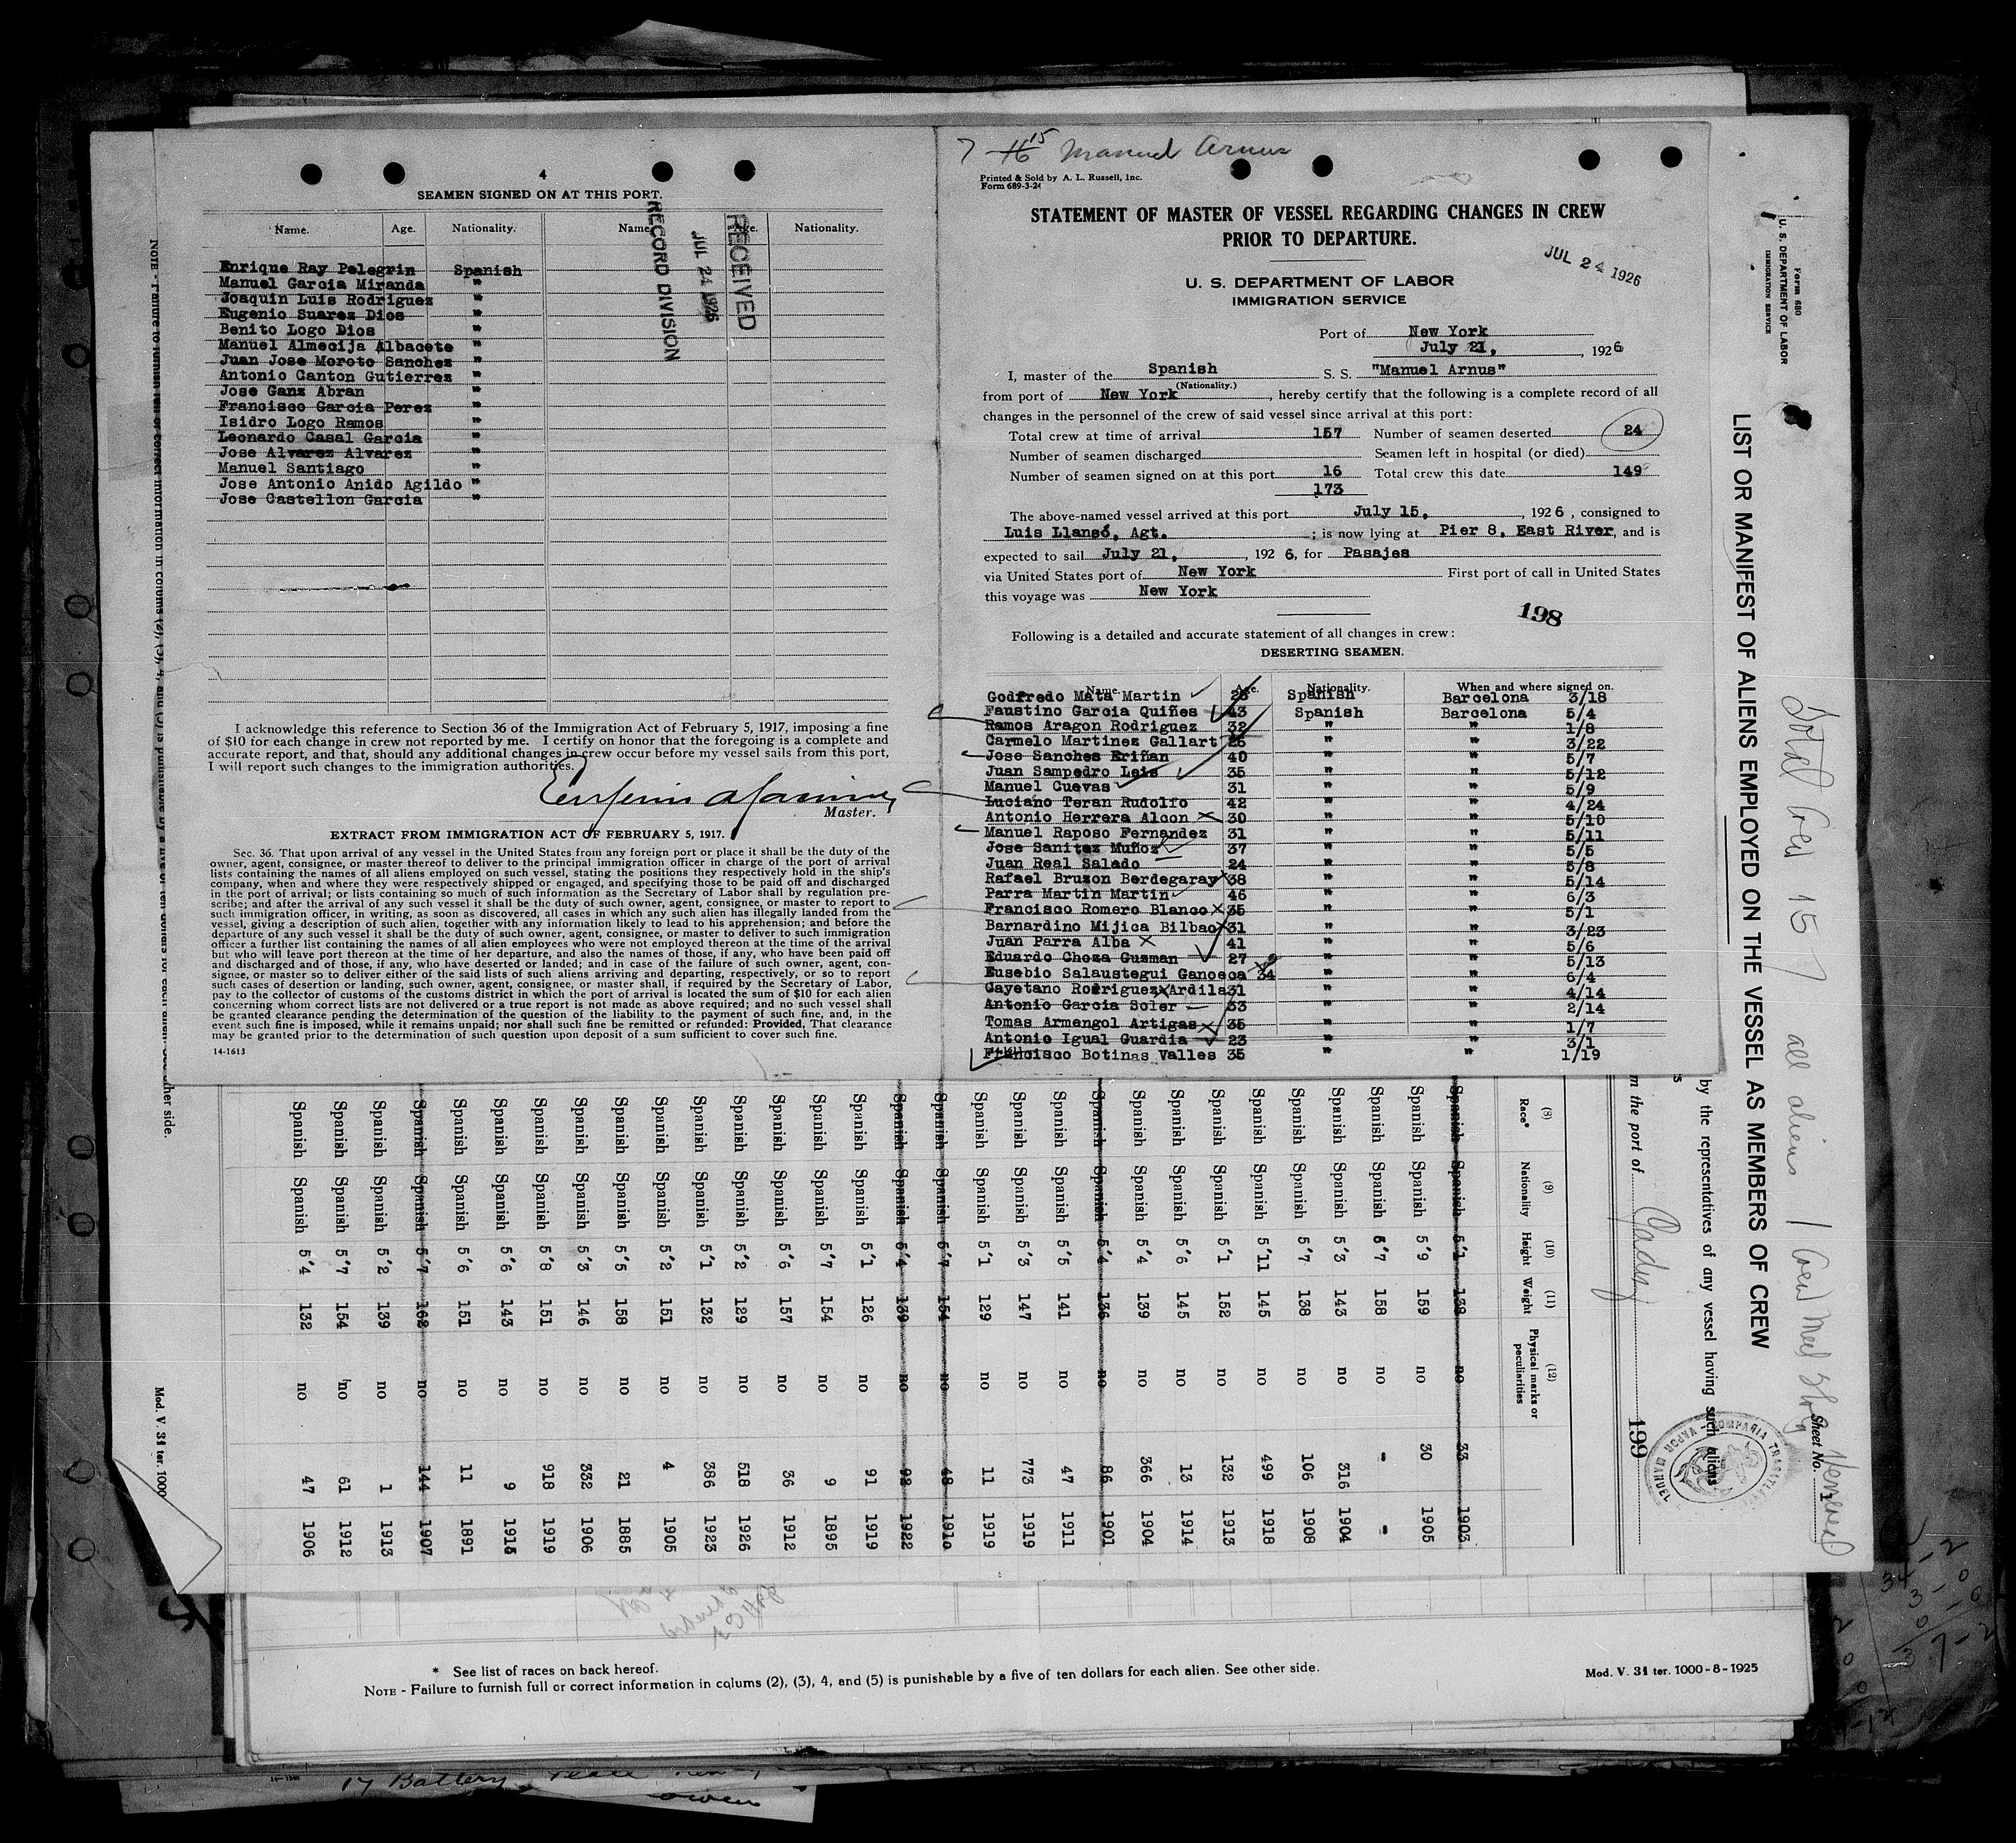 4
SEAMEN SIGNED ON AT THIS PORT.
Name. Age. Nationality. Name. Age. Nationality.
RECORD DIVISION
JUL 24 1926
RECEIVED
Enrique Ray Pelegrin Spanish
Manuel Garcia Miranda "
Joaquin Luis Rodriguez "
Eugenio Suarez Dios "
Benito Logo Dios "
Manuel Almecija Albacete "
Juan Jose Moroto Sanchez "
Antonio Canton Gutierrez "
Jose Ganz Abran "
Francisco Garcia Perez "
Isidro Logo Ramos "
Leonardo Casal Garcia "
Jose Alvarez Alvarez "
Manuel Santiago "
Jose Antonio Anido Agildo "
Jose Castellon Garcia "
I acknowledge this reference to Section 36 of the Immigration Act of February 5, 1917, imposing a fine
of $10 for each change in crew not reported by me. I certify on honor that the foregoing is a complete and
accurate report, and that, should any additional changes in crew occur before my vessel sails from this port,
I will report such changes to the immigration authorities.
Master.
EXTRACT FROM IMMIGRATION ACT OF FEBRUARY 5, 1917.
Sec. 36. That upon arrival of any vessel in the United States from any foreign port or place it shall be the duty of the
owner, agent, consignee, or master thereof to deliver to the principal immigration officer in charge of the port of arrival
lists containing the names of all aliens employed on such vessel, stating the positions they respectively hold in the ship's
company, when and where they were respectively shipped or engaged, and specifying those to be paid off and discharged
in the port of arrival; or lists containing so much of such information as the Secretary of Labor shall by regulation pre-
scribe; and after the arrival of any such vessel it shall be the duty of such owner, agent, consignee, or master to report to
such immigration officer, in writing, as soon as discovered, all cases in which any such alien has illegally landed from the
vessel, giving a description of such alien, together with any information likely to lead to his apprehension; and before the
departure of any such vessel it shall be the duty of such owner, agent, consignee, or master to deliver to such immigration
officer a further list containing the names of all alien employees who were not employed thereon at the time of the arrival
but who will leave port thereon at the time of her departure, and also the names of those, if any, who have been paid off
and discharged and of those, if any, who have deserted or landed; and in case of the failure of such owner, agent, con-
signee, or master so to deliver either of the said lists of such aliens arriving and departing, respectively, or so to report
such cases of desertion or landing, such owner, agent, consignee, or master shall, if required by the Secretary of Labor,
pay to the collector of customs of the customs district in which the port of arrival is located the sum of $10 for each alien
concerning whom correct lists are not delivered or a true report is not made as above required; and no such vessel shall
be granted clearance pending the determination of the question of the liability to the payment of such fine, and, in the
event such fine is imposed, while it remains unpaid; nor shall such fine be remitted or refunded: Provided, That clearance
may be granted prior to the determination of such question upon deposit of a sum sufficient to cover such fine.
14-1613
7 16 15 Manuel Arnus
Printed & Sold by A. L. Russell, Inc.
Form 689-3-24
STATEMENT OF MASTER OF VESSEL REGARDING CHANGES IN CREW
PRIOR TO DEPARTURE.
JUL 24 1926
U. S. DEPARTMENT OF LABOR
IMMIGRATION SERVICE
Port of New York
July 21, 1926
I, master of the Spanish S. S. "Manuel Arnus"
(Nationality.)
from port of New York, hereby certify that the following is a complete record of all
changes in the personnel of the crew of said vessel since arrival at this port:
Total crew at time of arrival 157 Number of seamen deserted 24
Number of seamen discharged Seamen left in hospital (or died)
Number of seamen signed on at this port 16 Total crew this date 149
173
The above-named vessel arrived at this port July 15, 1926, consigned to
Luis Llansó, Agt. ; is now lying at Pier 8, East River, and is
expected to sail July 21, 1926, for Pasajes
via United States port of New York First port of call in United States
this voyage was New York
198
Following is a detailed and accurate statement of all changes in crew:
DESERTING SEAMEN.
Name. Age. Nationality. When and where signed on.
Godfredo Mata Martin 26 Spanish Barcelona 3/18
Faustino Garcia Quiñes 43 Spanish Barcelona 5/4
Ramos Aragon Rodriguez 32 " " 1/8
Carmelo Martinez Gallart 26 " " 3/22
Jose Sanches Eriñan 40 " " 5/7
Juan Sampedro Leis 35 " " 5/12
Manuel Cuevas 31 " " 5/9
Luciano Teran Rudolfo 42 " " 4/24
Antonio Herrera Alcon 30 " " 5/10
Manuel Raposo Fernandez 31 " " 5/11
Jose Sanitez Muñoz 37 " " 5/5
Juan Real Salado 24 " " 5/8
Rafael Bruzon Berdegaray 38 " " 5/14
Parra Martin Martin 46 " " 6/3
Francisco Romero Blanco 35 " " 5/1
Barnardino Mijica Bilbao 31 " " 3/23
Juan Parra Alba 41 " " 5/6
Eduardo Choza Guzman 27 " " 5/13
Eusebio Salaustegui Ganoeca 34 " " 6/4
Cayetano Rodriguez Ardila 31 " " 4/14
Antonio Garcia Soler 33 " " 2/14
Tomas Armengol Artigas 35 " " 1/7
Antonio Igual Guardia 23 " " 3/1
Francisco Botinas Valles 35 " " 1/19
Form 680
U. S. DEPARTMENT OF LABOR
IMMIGRATION SERVICE
LIST OR MANIFEST OF ALIENS EMPLOYED ON THE VESSEL AS MEMBERS OF CREW
Total Crew 157 all aliens
Sheet No. 1
by the representatives of any vessel having such aliens
m the port of Cadiz
199
(8) Race* (9) Nationality (10) Height (11) Weight (12) Physical marks or peculiarities
Spanish Spanish 5'1 138 no 33 1903
Spanish Spanish 5'9 159 no 30 1905
Spanish Spanish 5'7 158 no - -
Spanish Spanish 5'3 143 no 316 1904
Spanish Spanish 5'7 138 no 106 1908
Spanish Spanish 5'11 145 no 499 1918
Spanish Spanish 5'1 152 no 132 1913
Spanish Spanish 5'6 145 no 13 1914
Spanish Spanish 5'4 139 no 366 1904
Spanish Spanish 5'4 136 no 86 1901
Spanish Spanish 5'5 141 no 47 1911
Spanish Spanish 5'3 147 no 773 1919
Spanish Spanish 5'1 129 no 11 1919
Spanish Spanish 5'7 154 no 48 1910
Spanish Spanish 5'4 139 no 92 1922
Spanish Spanish 5'1 126 no 91 1919
Spanish Spanish 5'7 154 no 9 1895
Spanish Spanish 5'6 157 no 36 1912
Spanish Spanish 5'2 129 no 518 1926
Spanish Spanish 5'1 132 no 386 1923
Spanish Spanish 5'2 151 no 4 1905
Spanish Spanish 5'5 158 no 21 1885
Spanish Spanish 5'3 146 no 332 1906
Spanish Spanish 5'8 151 no 918 1919
Spanish Spanish 5'6 143 no 9 1915
Spanish Spanish 5'6 151 no 11 1891
Spanish Spanish 5'7 162 no 144 1907
Spanish Spanish 5'2 139 no 1 1913
Spanish Spanish 5'7 154 no 61 1912
Spanish Spanish 5'4 132 no 47 1906
Mod. V. 31 ter. 1000
* See list of races on back hereof.
NOTE - Failure to furnish full or correct information in colums (2), (3), 4, and (5) is punishable by a five of ten dollars for each alien. See other side.
Mod. V. 31 ter. 1000-8-1925
17 Battery